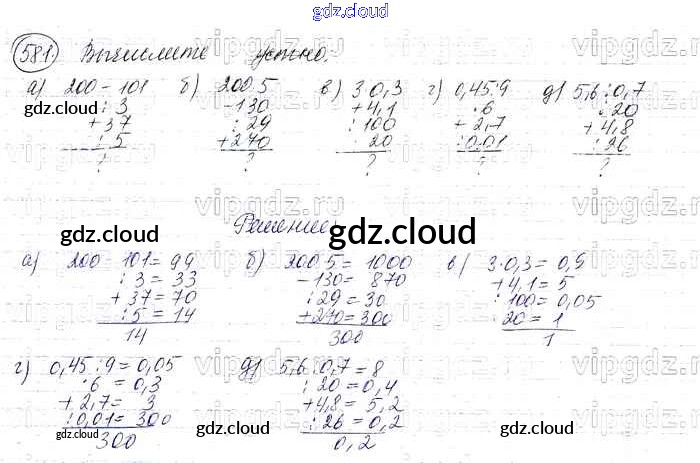 gdz.cloud
581. Вычислите устно:
а) 200 - 101 б) 200·5 в) 3·0,3 г) 0,45:9 д) 5,6:0,7
: 3 - 130 + 4,1 :6 :20
+ 37 : 29 : 100 + 2,7 + 4,8
: 5 + 270 · 20 :0,01 : 26
? ? ? ? ?
gdz.cloud gdz.cloud gdz.cloud gdz.cloud
Решение:
gdz.cloud gdz.cloud gdz.cloud
а) 200 - 101 = 99 б) 200·5 = 1000 в) 3·0,3 = 0,5
: 3 = 33 - 130 = 870 + 4,1 = 5
+ 37 = 70 : 29 = 30 : 100 = 0,05
: 5 = 14 + 270 = 300 · 20 = 1
14 300 1
г) 0,45 : 9 = 0,05 д) 5,6 : 0,7 = 8
: 6 = 0,3 : 20 = 0,4
+ 2,7 = 3 + 4,8 = 5,2
: 0,01 = 300 : 26 = 0,2
300 0,2
gdz.cloud gdz.cloud gdz.cloud gdz.cloud